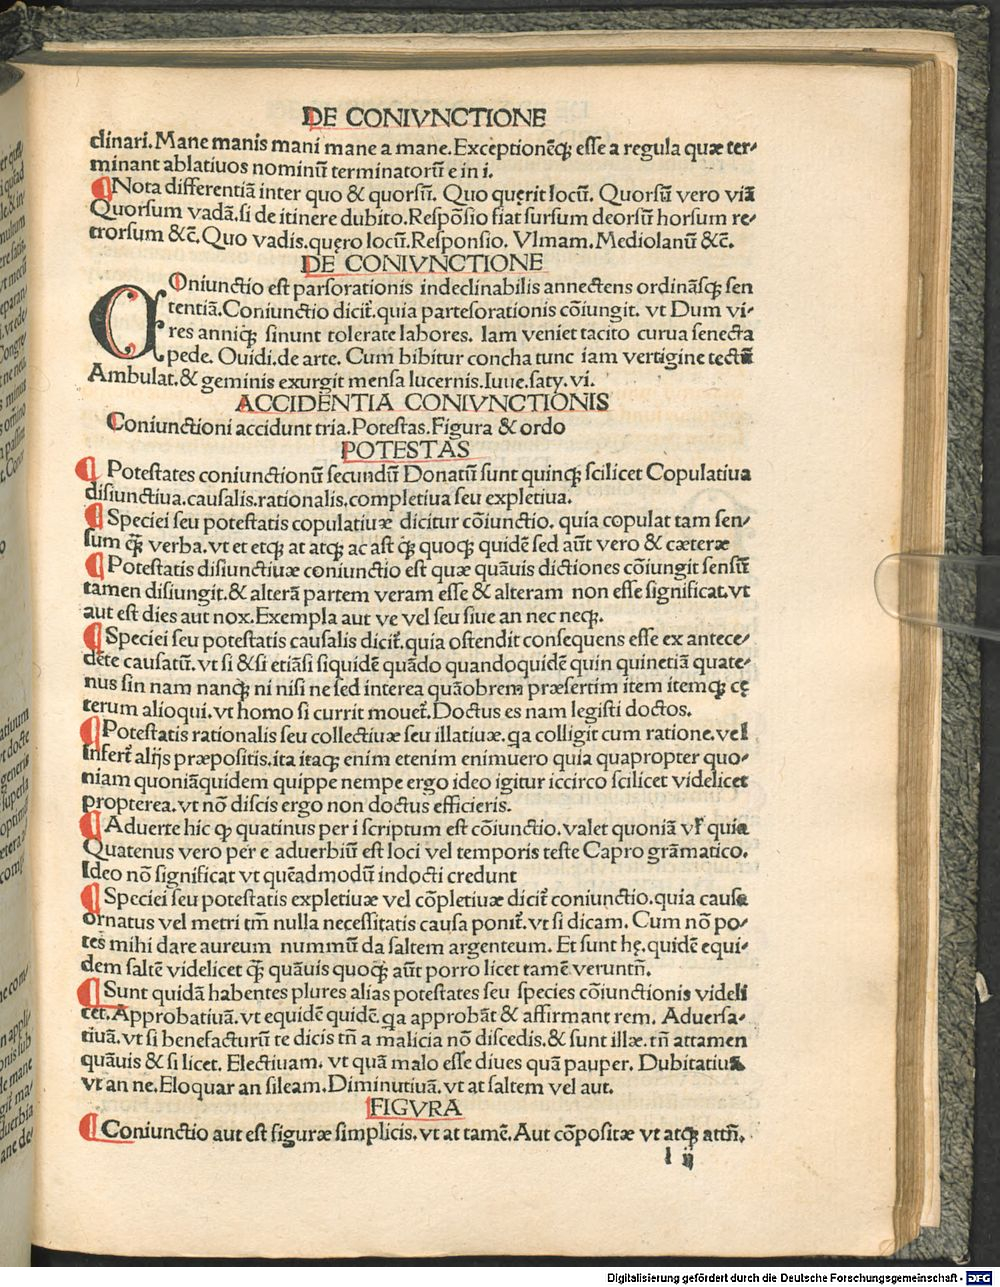 DE CONIVNCTIONE
dinari. Mane manis mani mane a mane. Exceptionēq; esse a regula quæ ter-
minant ablatiuos nominū terminatorū e in i.
¶ Nota differentiā inter quo & quorsū. Quo quęrit locū. Quorsū vero viā
Quorsum vadā. si de itinere dubito. Respōsio fiat sursum deorsū horsum re-
trorsum &c̄. Quo vadis. quęro locū. Responsio. Vlmam. Mediolanū &c̄.
DE CONIVNCTIONE
COniunctio est parsorationis indeclinabilis annectens ordinānsq; sen
tentiā. Coniunctio dicit̄. quia partesorationis cōiungit. vt Dum vi-
res anniq; sinunt tolerate labores. Iam veniet tacito curua senecta
pede. Ouidi. de arte. Cum bibitur concha tunc iam vertigine tectū
Ambulat. & geminis exurgit mensa lucernis. Iuue. saty. vi.
ACCIDENTIA CONIVNCTIONIS
Coniunctioni accidunt tria. Potestas. Figura & ordo
POTESTAS
¶ Potestates coniunctionū secundū Donatū sunt quinq; scilicet Copulatiua
disiunctiua. causalis. rationalis. completiua seu expletiua.
¶ Speciei seu potestatis copulatiuæ dicitur cōiunctio. quia copulat tam sen-
sum q̄ verba. vt et etq; at atq; ac ast q̄ quoq; quidē sed aūt vero & cæteræ
¶ Potestatis disiunctiuæ coniunctio est quæ quāuis dictiones cōiungit sensū
tamen disiungit. & alterā partem veram esse & alteram non esse significat. vt
aut est dies aut nox. Exempla aut ve vel seu siue an nec neq;.
¶ Speciei seu potestatis causalis dicit̄. quia ostendit consequens esse ex antece-
dēte causatū. vt si & si etiāsi siquidē quādo quandoquidē quin quinetiā quate-
nus sin nam nanq; ni nisi ne sed interea quāobrem præsertim item itemq; cę
terum alioqui. vt homo si currit mouet̄. Doctus es nam legisti doctos.
¶ Potestatis rationalis seu collectiuæ seu illatiuæ. qa colligit cum ratione. vel
infert̄ alijs præpositis. ita itaq; enim etenim enimuero quia quapropter quo-
niam quoniāquidem quippe nempe ergo ideo igitur iccirco scilicet videlicet
propterea. vt nō discis ergo non doctus efficieris.
¶ Aduerte hic q quatinus per i scriptum est cōiunctio. valet quoniā vl̄ quia
Quatenus vero per e aduerbiū est loci vel temporis teste Capro grāmatico.
Ideo nō significat vt quēadmodū indocti credunt
¶ Speciei seu potestatis expletiuæ vel cōpletiuæ dicit̄ coniunctio. quia causa
ornatus vel metri tm̄ nulla necessitatis causa ponit̄. vt si dicam. Cum nō po-
tes mihi dare aureum nummū da saltem argenteum. Et sunt hę. quidē equi-
dem saltē videlicet q̄ quāuis quoq; aūt porro licet tamē veruntn̄.
¶ Sunt quidā habentes plures alias potestates seu species cōiunctionis videli
cet. Approbatiuā. vt equidē quidē. qa approbāt & affirmant rem. Aduersa-
tiuā. vt si benefacturū te dicis tn̄ a malicia nō discedis. & sunt illæ. tn̄ attamen
quāuis & si licet. Electiuam. vt quā malo esse diues quā pauper. Dubitatiuā
vt an ne. Eloquar an sileam. Diminutiuā. vt at saltem vel aut.
FIGVRA
¶ Coniunctio aut est figuræ simplicis. vt at tamē. Aut cōpositæ vt atq; attn̄.
l ij
Digitalisierung gefördert durch die Deutsche Forschungsgemeinschaft - DFG